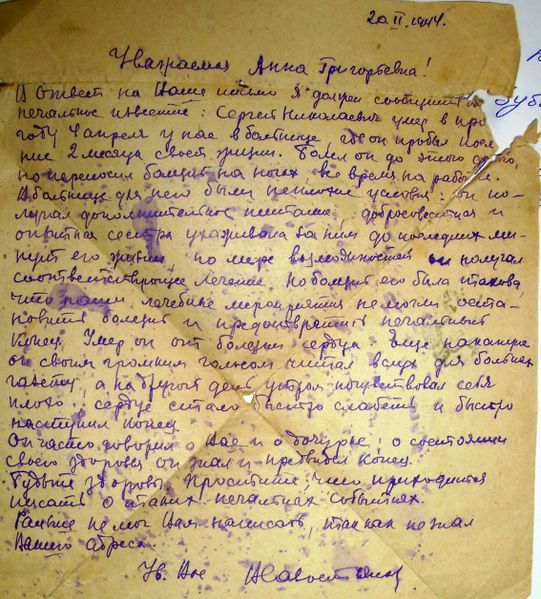 20 II. 1944.
Уважаемая Анна Григорьевна!
В ответ на Ваше письмо я должен сообщить
печальное известие: Сергей Николаевич умер в про
году 4 апреля у нас в больнице где он пробыл после
ние 2 месяца своей жизни. Болел он до этого
но переносил болезнь на ногах все время на работе.
В больнице для него были неплохие условия: он по-
лучал дополнительное питание, добросовестная и
опытная сестра ухаживала за ним до последних ми-
нут его жизни, по мере возможностей он получал
соответствующее лечение. Но болезнь его была такова
что наши лечебные мероприятия не могли оста-
новить болезнь и предотвратить печальный
конец. Умер он от болезни сердца. Еще накануне
он своим громким голосом читал вслух для больных
газету, а на другой день утром почувствовал себя
плохо, сердце стало быстро слабеть и быстро
наступил конец.
Он часто говорил о Вас и о дочурке, о состоянии
своего здоровья он знал и предвидел конец.
Будьте здоровы. Простите, что приходится
писать о таких печальных событиях.
Раньше не мог Вам написать, так как не знал
Вашего адреса.
Ув. Вас